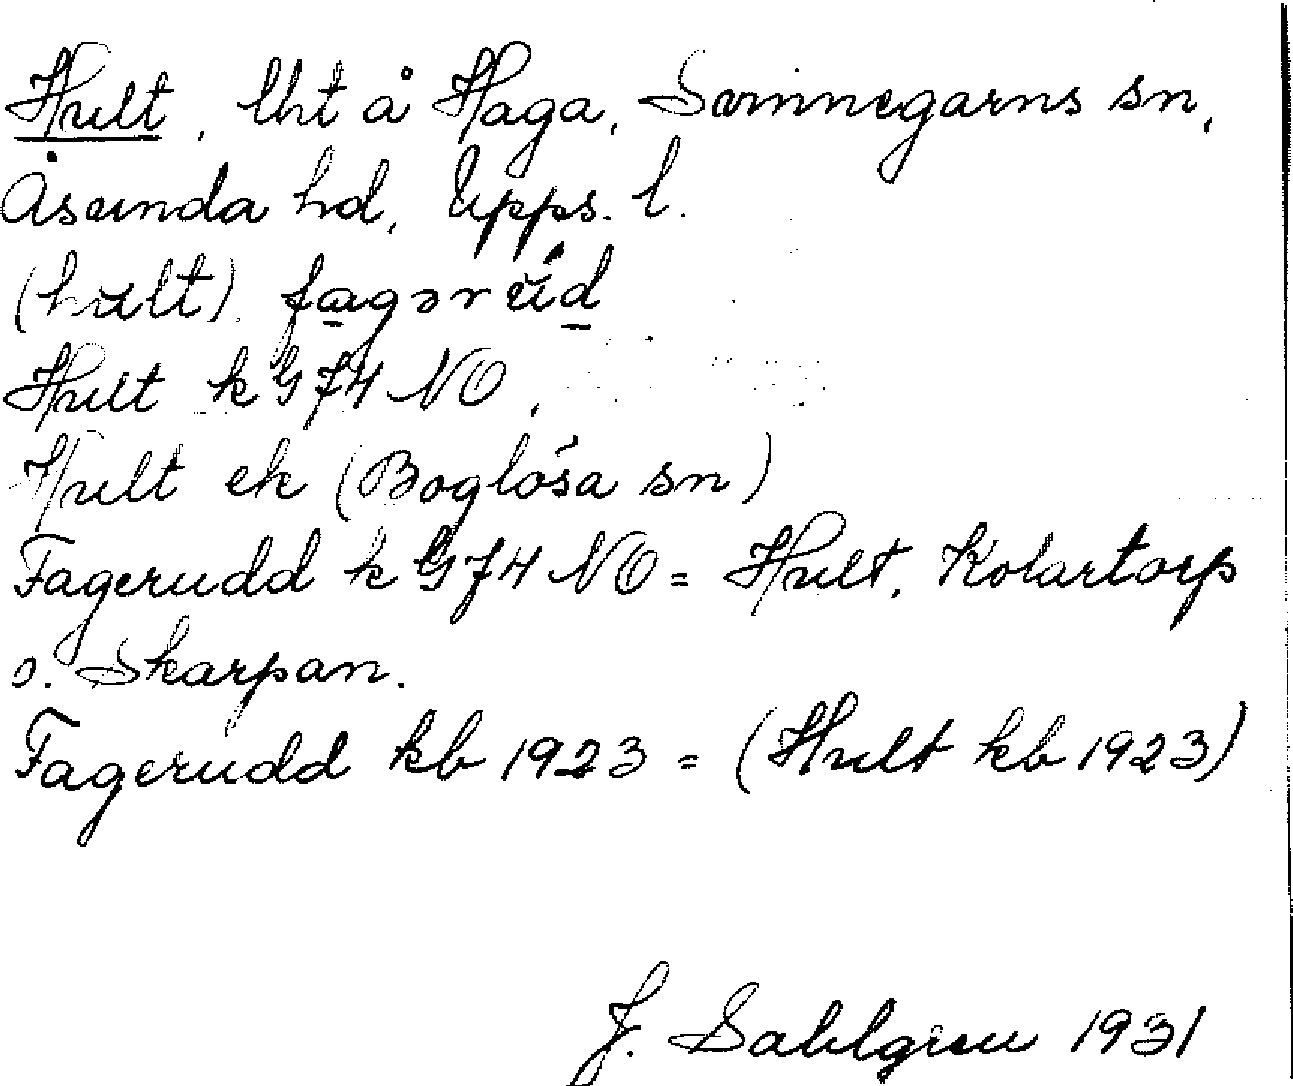 Hult, lht å Haga, Svinnegarns sn,
Åsunda hd, Upps. l.
(hult). fagərúd
Hult k G 74 NO,
Hult ek (Boglösa sn)
Fagerudd k G 74 NO = Hult, Kolartorp
o. Skarpan.
Fagerudd kb 1923 = (Hult kb 1923)
J. Sahlgren 1931